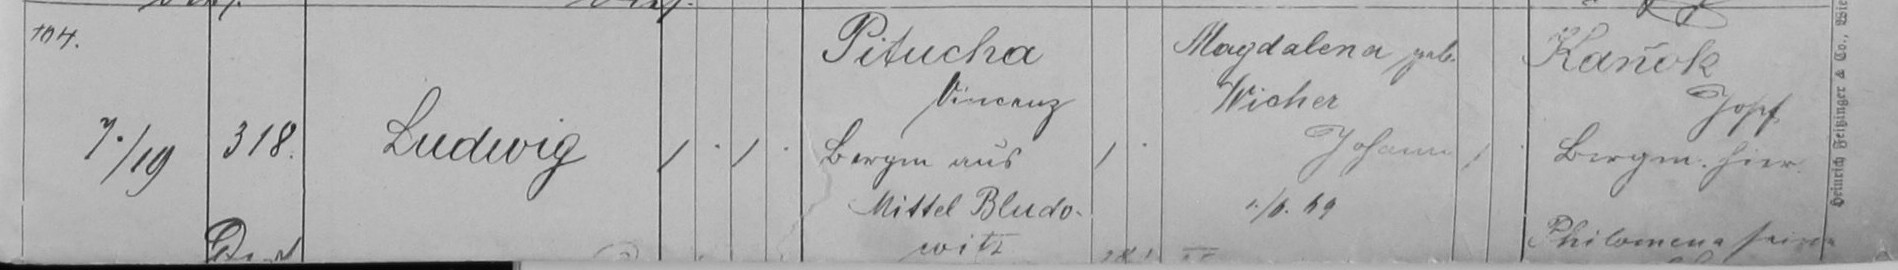 104.
7./19
318.
Ludwig
Pitucha
Vincenz
Bergm aus
Mittel Bludo-
witz
Magdalena geb.
Wicher
Johann
1./6. 69
Kaňok
Josef,
Bergm. hier.
Philomena seine
Heinrich Feitzinger & Co., Wie